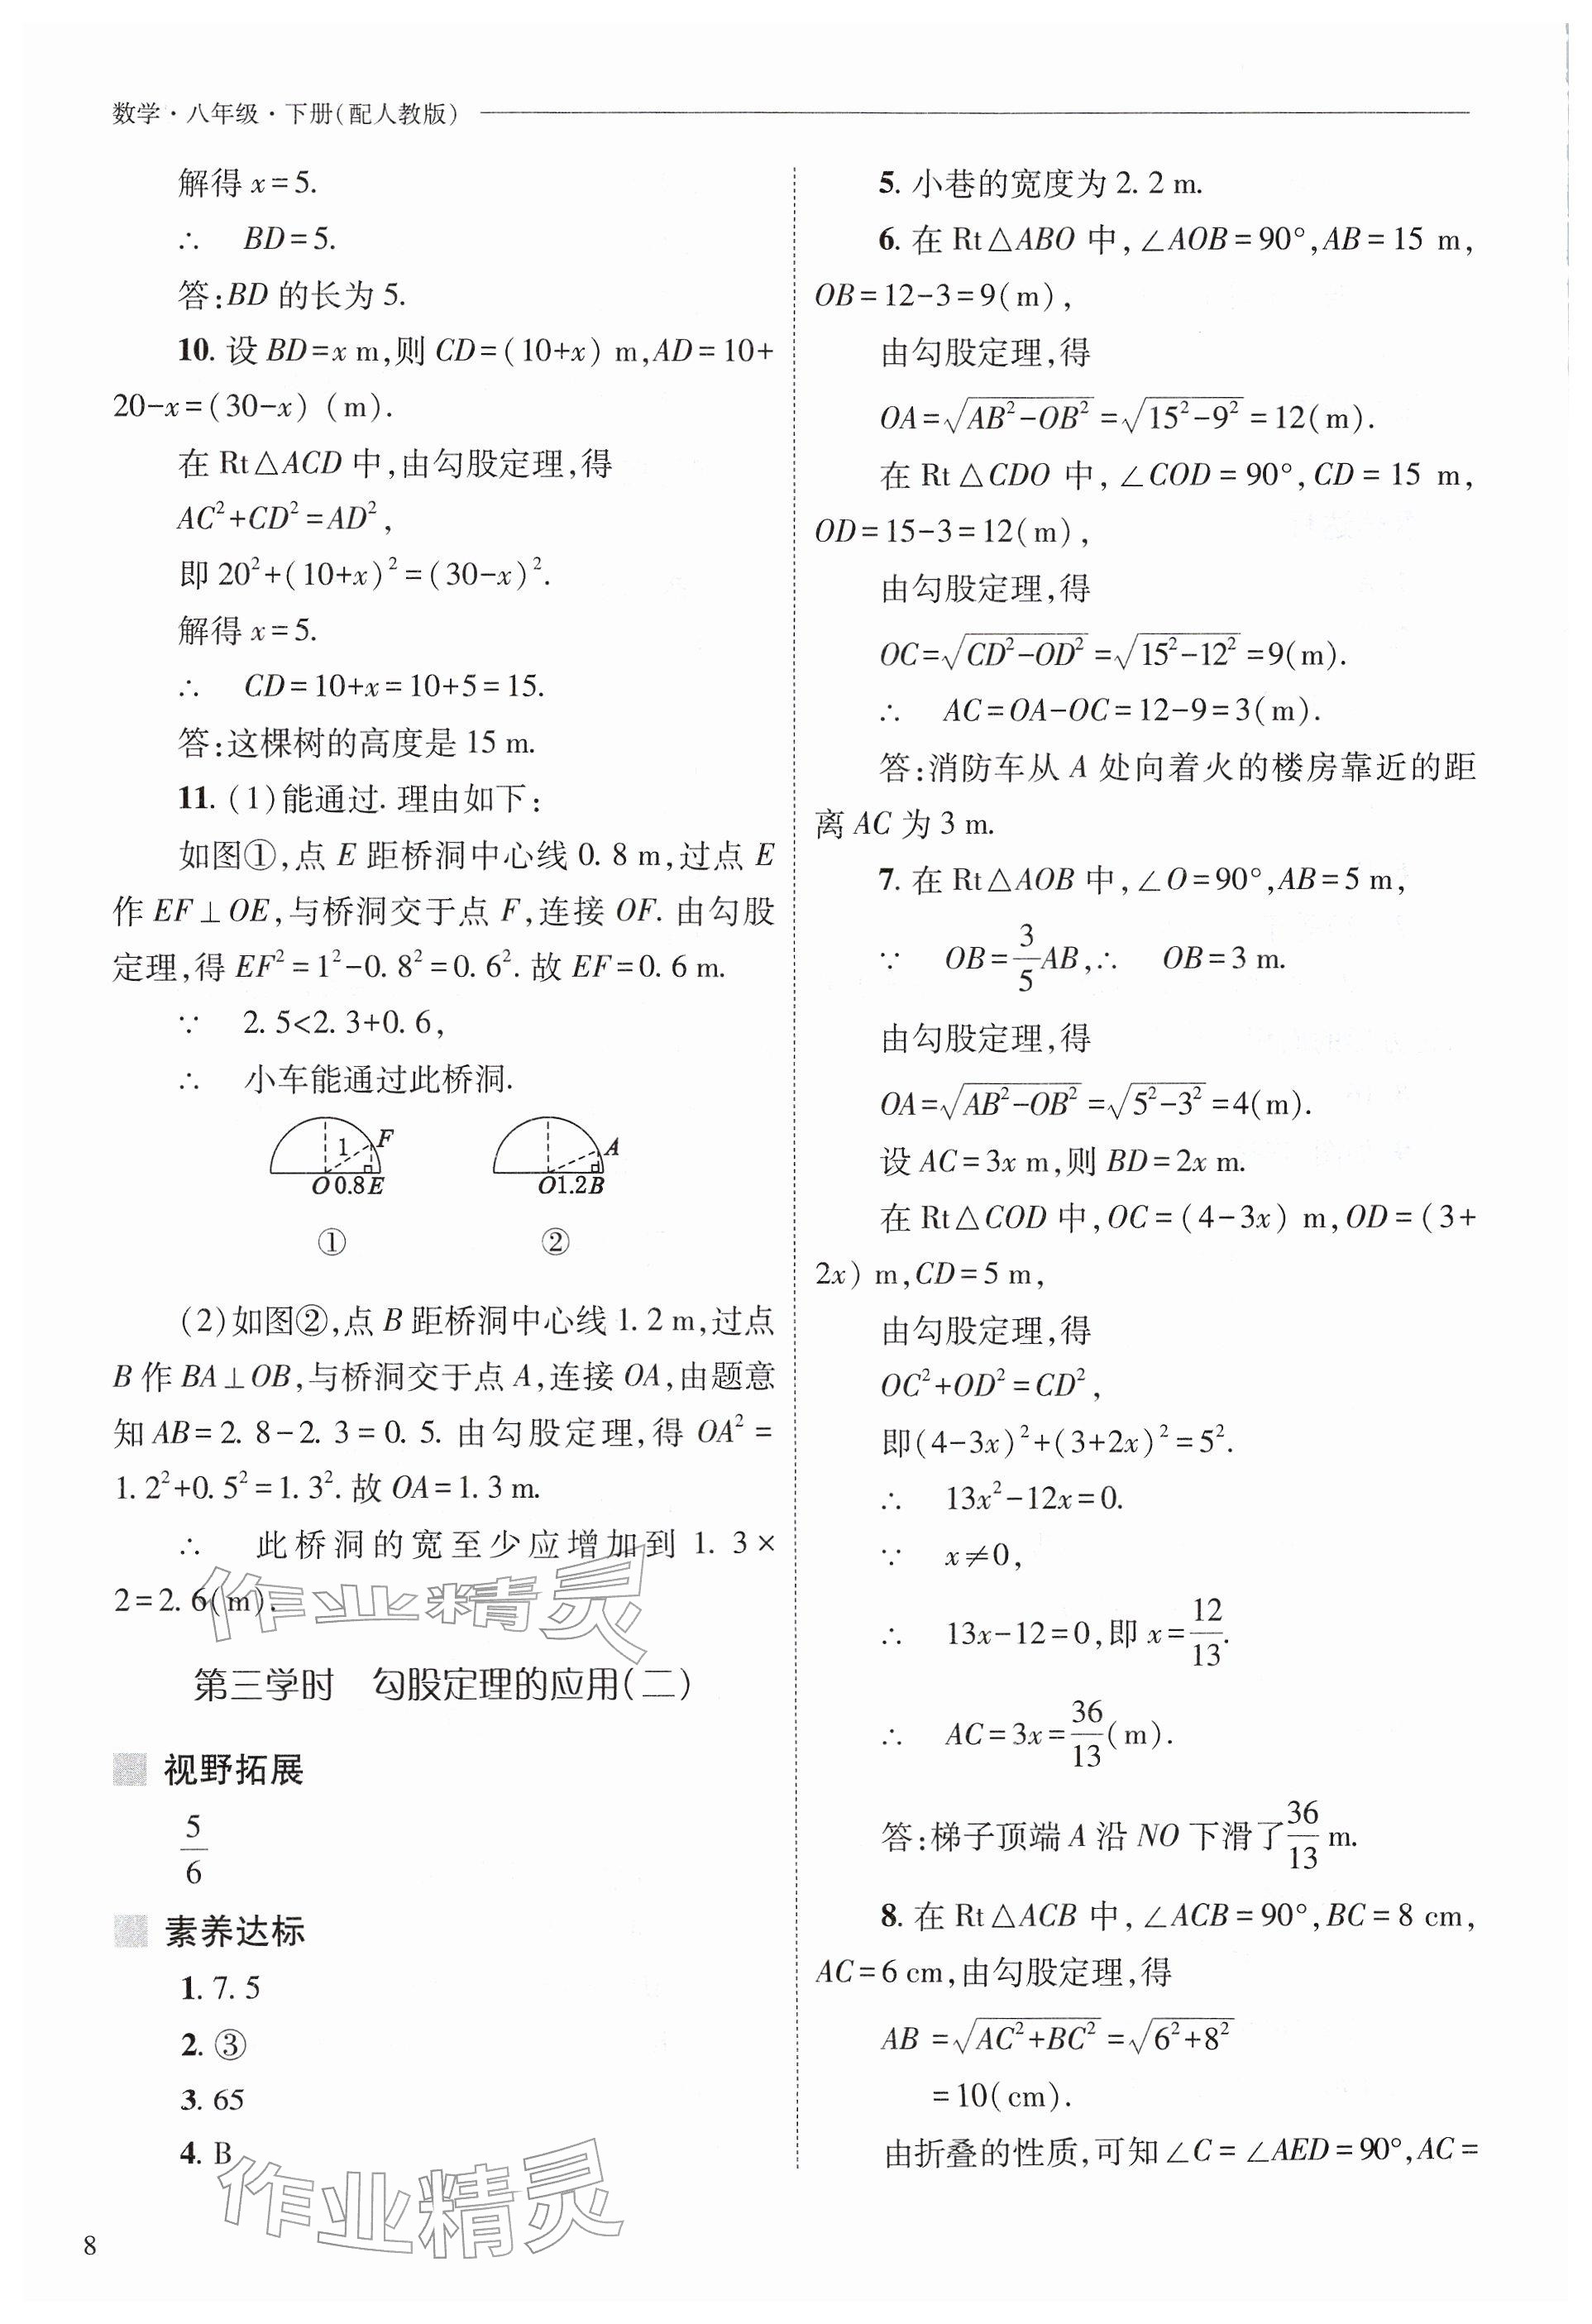 数学·八年级·下册(配人教版)
解得 x=5.
∴ BD=5.
答:BD 的长为 5.
10. 设 BD=x m,则 CD=(10+x) m,AD=10+
20-x=(30-x) (m).
在 Rt△ACD 中,由勾股定理,得
AC²+CD²=AD²,
即 20²+(10+x)²=(30-x)².
解得 x=5.
∴ CD=10+x=10+5=15.
答:这棵树的高度是 15 m.
11. (1)能通过. 理由如下:
如图①,点 E 距桥洞中心线 0.8 m,过点 E
作 EF⊥OE,与桥洞交于点 F,连接 OF. 由勾股
定理,得 EF²=1²-0.8²=0.6². 故 EF=0.6 m.
∵ 2.5<2.3+0.6,
∴ 小车能通过此桥洞.
1 F
O 0.8 E
①
A
O 1.2 B
②
(2)如图②,点 B 距桥洞中心线 1.2 m,过点
B 作 BA⊥OB,与桥洞交于点 A,连接 OA,由题意
知 AB=2.8-2.3=0.5. 由勾股定理,得 OA²=
1.2²+0.5²=1.3². 故 OA=1.3 m.
∴ 此桥洞的宽至少应增加到 1.3×
2=2.6(m).
作业精灵
第三学时 勾股定理的应用(二)
视野拓展
5/6
素养达标
1. 7.5
2. ③
3. 65
4. B
作业精灵
8
5. 小巷的宽度为 2.2 m.
6. 在 Rt△ABO 中,∠AOB=90°,AB=15 m,
OB=12-3=9(m),
由勾股定理,得
OA=√(AB²-OB²)=√(15²-9²)=12(m).
在 Rt△CDO 中,∠COD=90°,CD=15 m,
OD=15-3=12(m),
由勾股定理,得
OC=√(CD²-OD²)=√(15²-12²)=9(m).
∴ AC=OA-OC=12-9=3(m).
答:消防车从 A 处向着火的楼房靠近的距
离 AC 为 3 m.
7. 在 Rt△AOB 中,∠O=90°,AB=5 m,
∵ OB=3/5AB,∴ OB=3 m.
由勾股定理,得
OA=√(AB²-OB²)=√(5²-3²)=4(m).
设 AC=3x m,则 BD=2x m.
在 Rt△COD 中,OC=(4-3x) m,OD=(3+
2x) m,CD=5 m,
由勾股定理,得
OC²+OD²=CD²,
即(4-3x)²+(3+2x)²=5².
∴ 13x²-12x=0.
∵ x≠0,
∴ 13x-12=0,即 x=12/13.
∴ AC=3x=36/13(m).
答:梯子顶端 A 沿 NO 下滑了36/13 m.
8. 在 Rt△ACB 中,∠ACB=90°,BC=8 cm,
AC=6 cm,由勾股定理,得
AB =√(AC²+BC²)=√(6²+8²)
=10(cm).
由折叠的性质,可知∠C=∠AED=90°,AC=